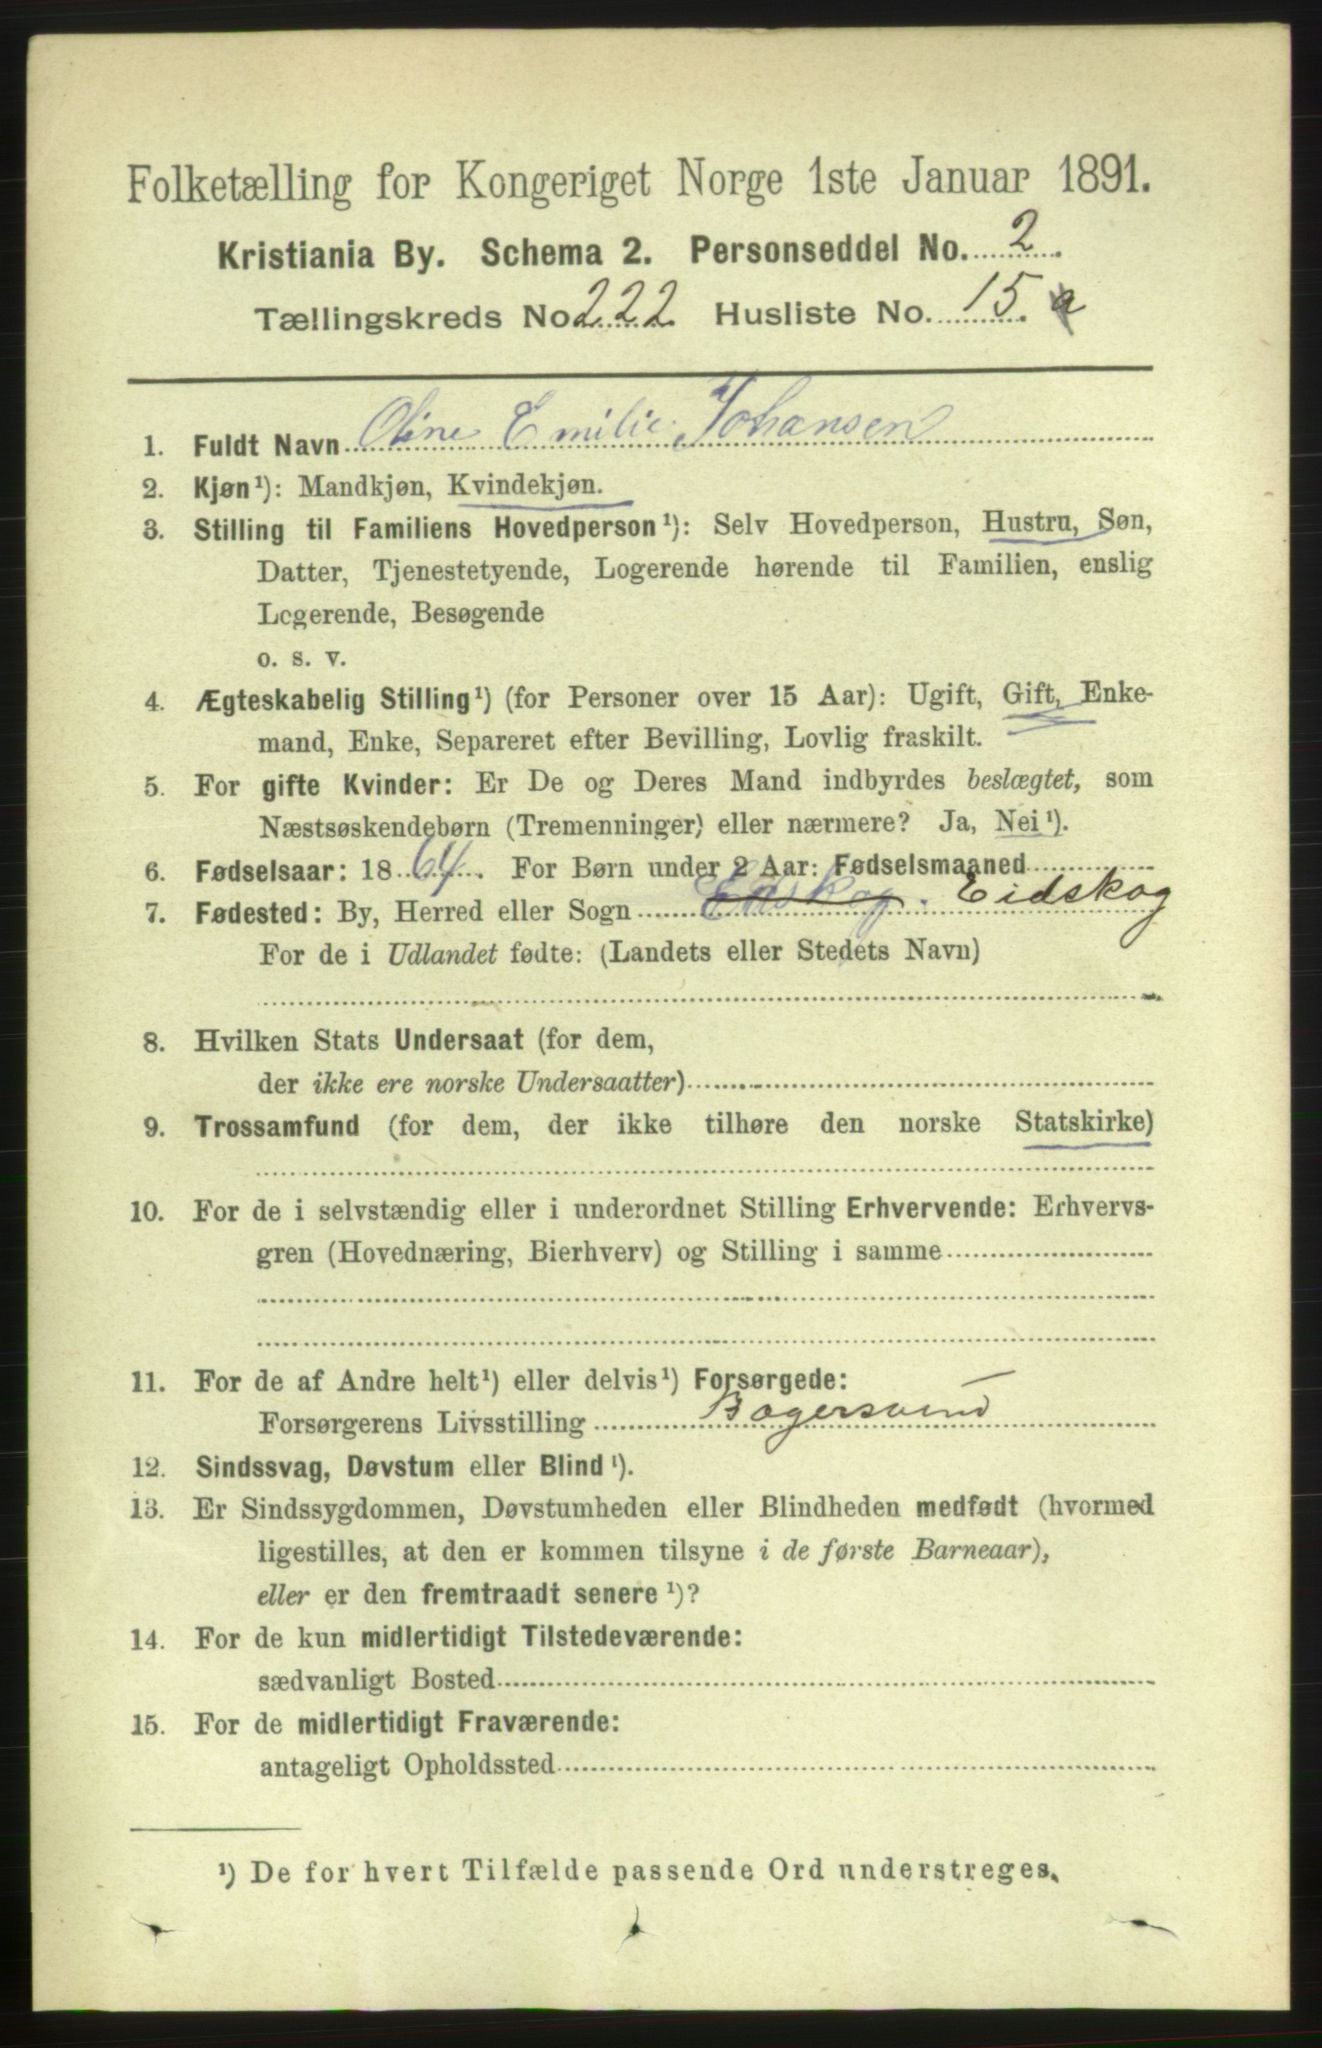 Folketælling for Kongeriget Norge 1ste Januar 1891.
Kristiania By. Schema 2. Personseddel No. 2
Tællingskreds No. 222 Husliste No. 15. a
1. Fuldt Navn Oline Emilie Johansen
2. Kjøn¹): Mandkjøn, Kvindekjøn.
3. Stilling til Familiens Hovedperson¹): Selv Hovedperson, Hustru, Søn,
Datter, Tjenestetyende, Logerende hørende til Familien, enslig
Logerende, Besøgende
o. s. v.
4. Ægteskabelig Stilling¹) (for Personer over 15 Aar): Ugift, Gift, Enke-
mand, Enke, Separeret efter Bevilling, Lovlig fraskilt.
5. For gifte Kvinder: Er De og Deres Mand indbyrdes beslægtet, som
Næstsøskendebørn (Tremenninger) eller nærmere? Ja, Nei¹).
6. Fødselsaar: 1864. For Børn under 2 Aar: Fødselsmaaned
7. Fødested: By, Herred eller Sogn Eidskog
For de i Udlandet fødte: (Landets eller Stedets Navn)
8. Hvilken Stats Undersaat (for dem,
der ikke ere norske Undersaatter)
9. Trossamfund (for dem, der ikke tilhøre den norske Statskirke)
10. For de i selvstændig eller i underordnet Stilling Erhvervende: Erhvervs-
gren (Hovednæring, Bierhverv) og Stilling i samme
11. For de af Andre helt¹) eller delvis¹) Forsørgede:
Forsørgerens Livsstilling Bagersvend
12. Sindssvag, Døvstum eller Blind¹).
13. Er Sindssygdommen, Døvstumheden eller Blindheden medfødt (hvormed
ligestilles, at den er kommen tilsyne i de første Barneaar),
eller er den fremtraadt senere¹)?
14. For de kun midlertidigt Tilstedeværende:
sædvanligt Bosted
15. For de midlertidigt Fraværende:
antageligt Opholdssted
¹) De for hvert Tilfælde passende Ord understreges.